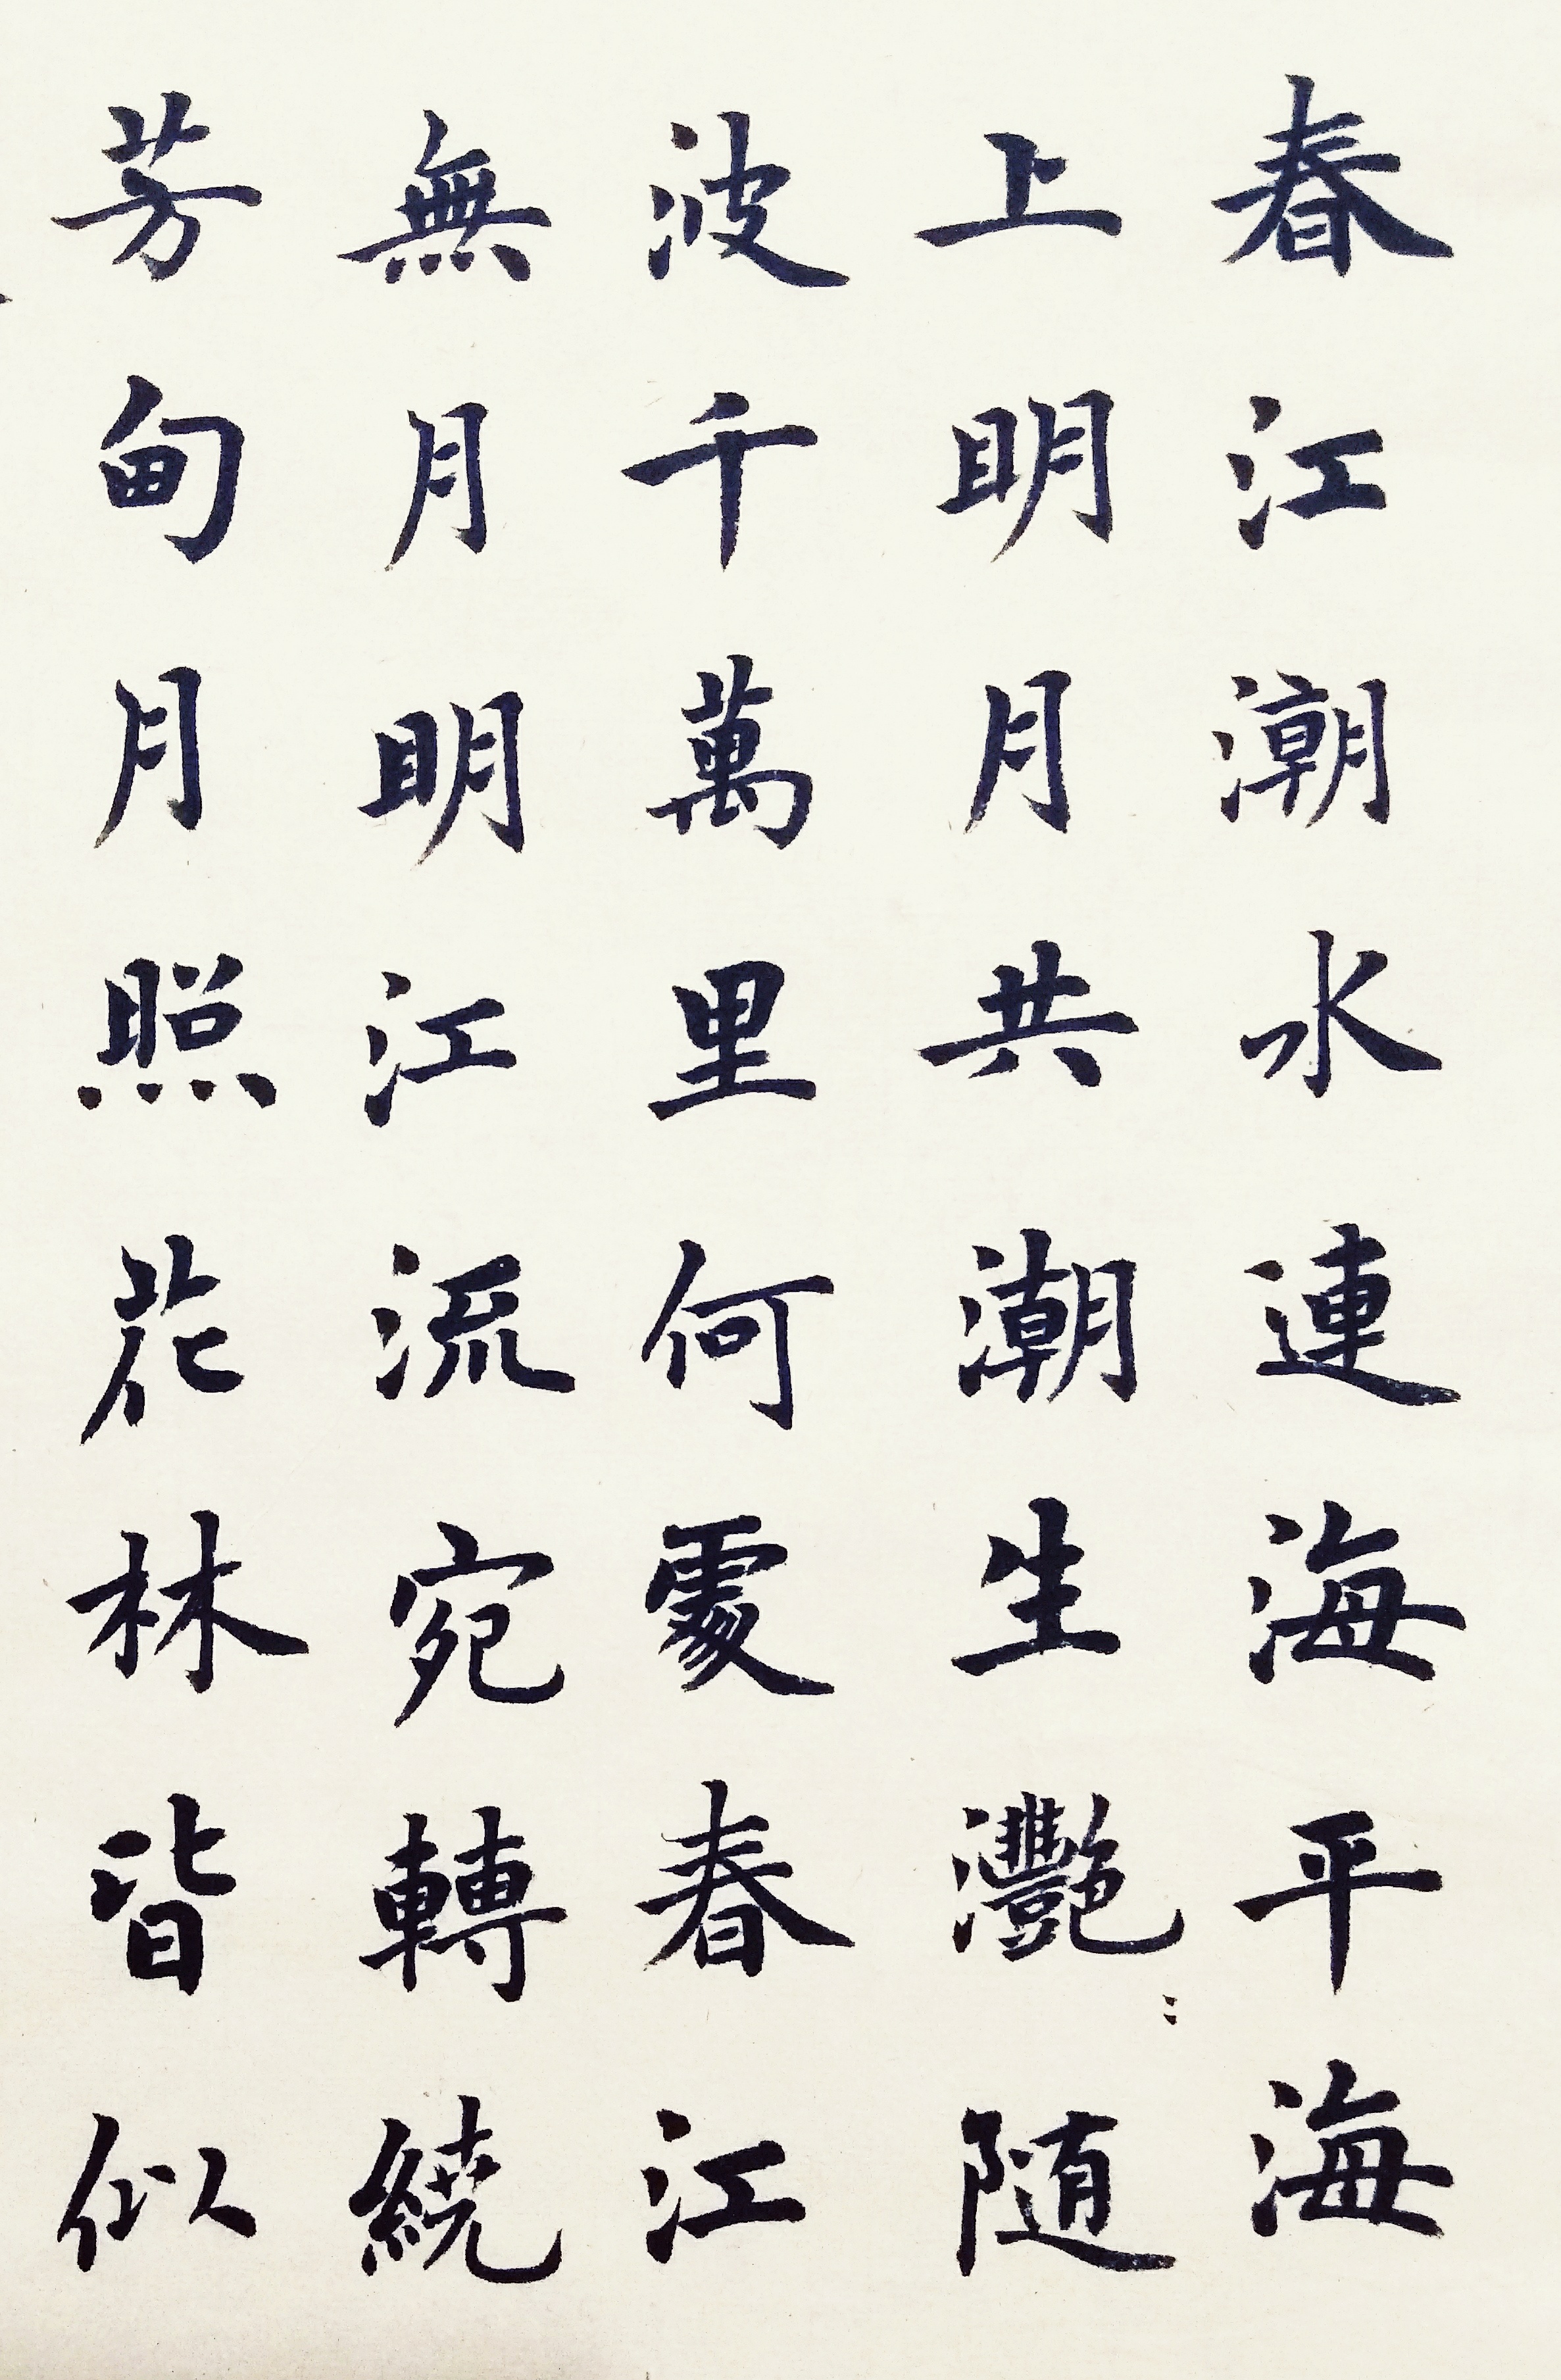 春江潮水連海平海
上明月共潮生灧〻随
波千萬里何處春江
無月明江流宛轉繞
芳甸月照花林皆似